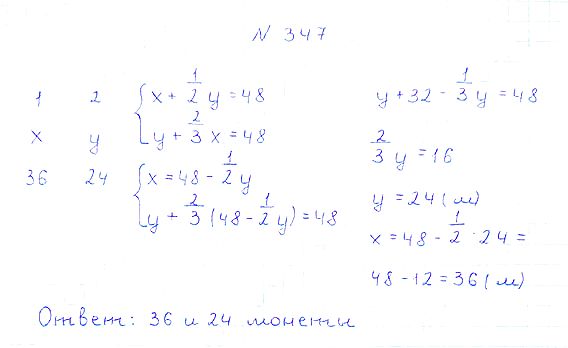 N 347
1 2
x y
36 24
x + 1/2 y = 48
y + 2/3 x = 48
x = 48 - 1/2 y
y + 2/3 (48 - 1/2 y) = 48
y + 32 - 1/3 y = 48
2/3 y = 16
y = 24 (м)
x = 48 - 1/2 · 24 =
48 - 12 = 36 (м)
Ответ: 36 и 24 монеты